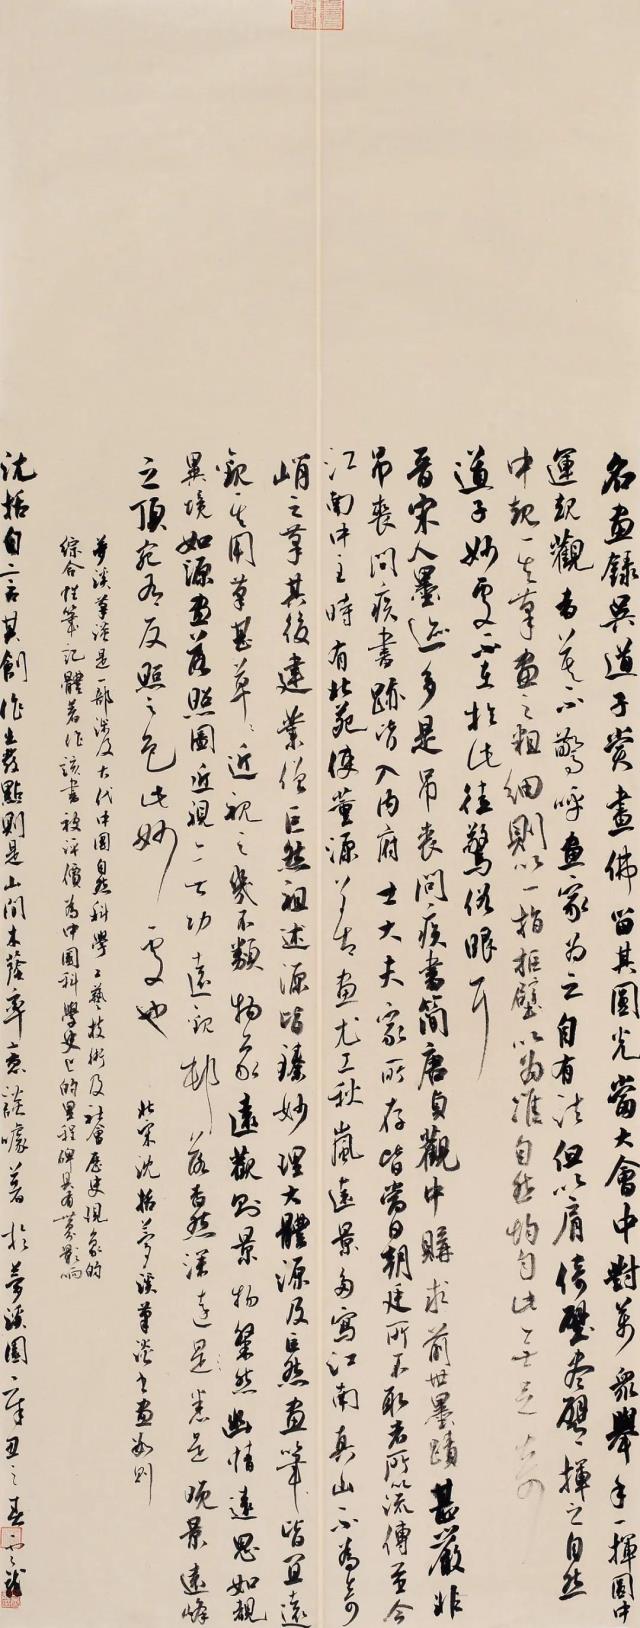 名畫錄吳道子嘗畫佛留其圓光當大會中對萬眾舉手一揮圓中
運規觀者莫不驚呼畫家為之自有法但以肩倚壁盡臂揮之自然
中規其筆畫之粗細則以一指拒壁以為準自然均勻此無足奇
道子妙處不在於此徒驚俗眼耳
晉宋人墨迹多是吊喪問疾書簡唐貞觀中購求前世墨蹟甚嚴非
吊喪問疾書跡皆入內府士大夫家所存皆當日朝廷所不取者所以流傳至今
江南中主時有北苑使董源善畫尤工秋嵐遠景多寫江南真山不為奇
峭之筆其後建業僧巨然祖述源皆臻妙理大體源及巨然畫筆皆宜遠
觀其用筆甚草草近視之幾不類物象遠觀則景物粲然幽情遠思如覩
異境如源畫落照圖近視無功遠觀村落杳然深遠悉是晚景遠峰
之頂宛有反照之色此妙處也 北宋沈括夢溪筆談書畫數則
夢溪筆談是一部涉及古代中國自然科學工藝技術及社會歷史現象的
綜合性筆記體著作該書被評價為中國科學史上的里程碑具有世界影響
沈括自言其創作出發點則是山間木蔭率意談噱著於夢溪園辛丑之春